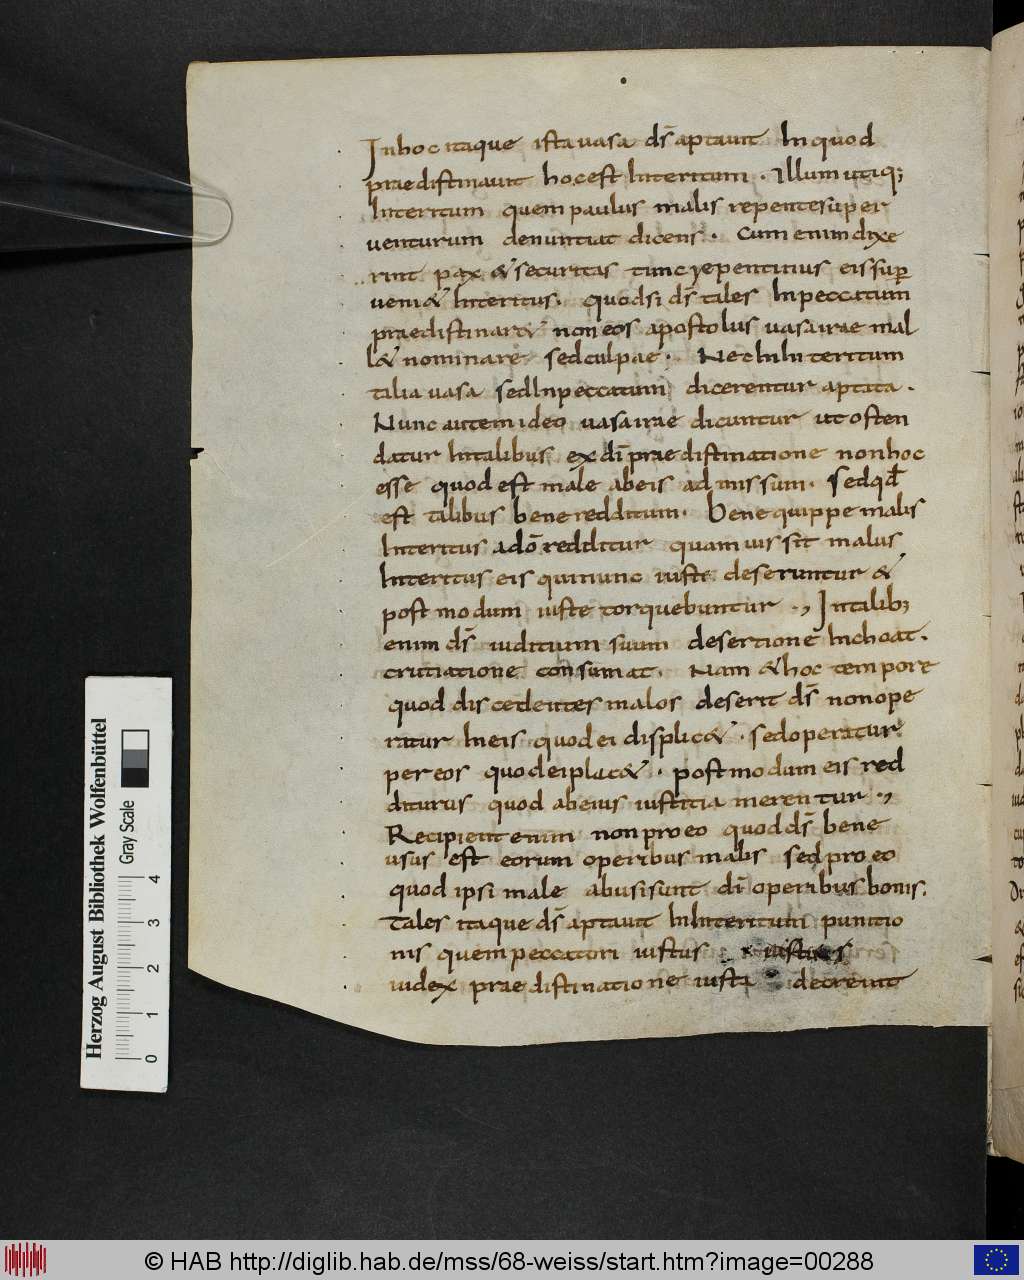 Inhoc itaque ista vasa ds̄ aptavit Inquod
praedistinavit hocest Interitum . Illum utiq;
Interitum quem paulus malis repente super
venturum denuntiat dicens . Cum enim dixe
rint pax & securitas tunc repentinus eis sup̱
veni& Interitus . quodsi ds̄ tales Inpeccatum
praedistinar& non eos apostolus vasa irae mal
l& nominare sed culpae . Nec InInteritum
talia vasa sed Inpeccatum dicerentur aptata .
Nunc autem ideo vasa irae dicuntur ut osten
datur Intalibus ex dī praedistinatione non hoc
esse quod est male ab eis admissum . sed qđ
est talibus bene redditum . Bene quippe malis
Interitus ado͞ redditur quamvis sit malus
Interitus eis qui nunc iuste deseruntur &
postmodum iuste torquebuntur ., Intalib;
enim ds̄ iuditium suum desertione Inchoat .
crutiatione consumat . Nam & hoc tempore
quod discedentes malos deserit ds̄ non ope
ratur Ineis quod ei displic& . sed operatur
per eos quod ei plac& . postmodum eis red
diturus quod ab eius iustitia merentur .,
Recipient enim non pro eo quod ds̄ bene
usus est eorum operibus malis sed pro eo
quod ipsi male abusi sunt dī operibus bonis .
Tales itaque ds̄ aptavit InInteritum punitio
nis quem peccatori iustus
iudex praedistinatione iusta decrevit
Herzog August Bibliothek Wolfenbüttel
Gray Scale
0 1 2 3 4
© HAB http://diglib.hab.de/mss/68-weiss/start.htm?image=00288